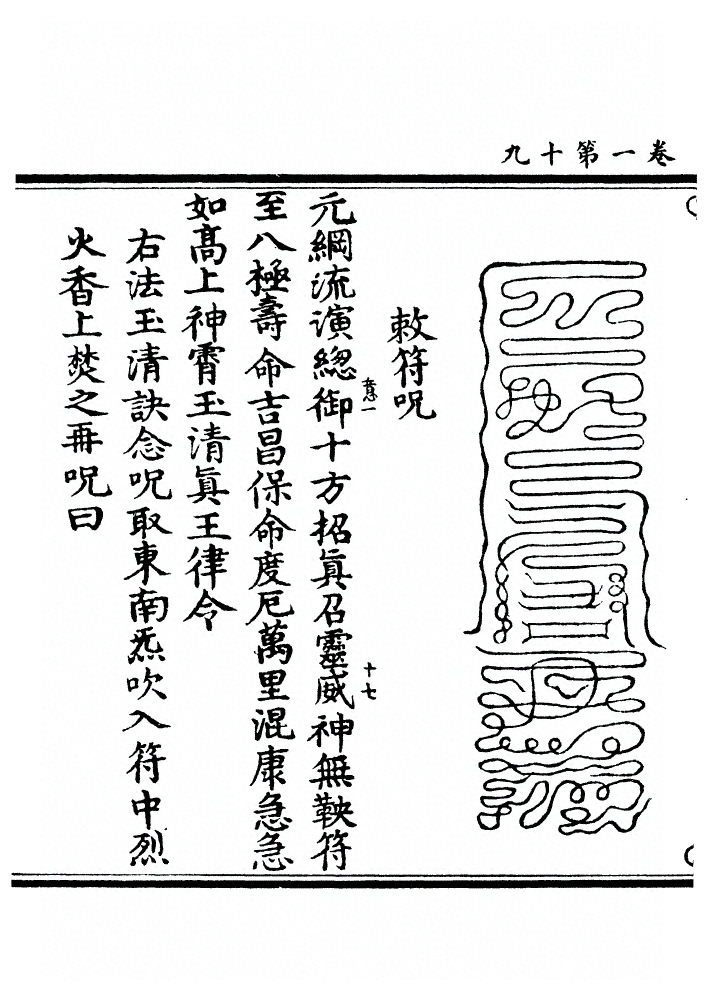 卷一第十九
敕符呪
元綱流演緫御十方招眞召靈威神無鞅符
至八極壽命吉昌保命度厄萬里混康急急
如髙上神霄玉清眞王律令
右法玉清訣念呪取東南炁吹入符中烈
火香上焚之再呪曰
十七